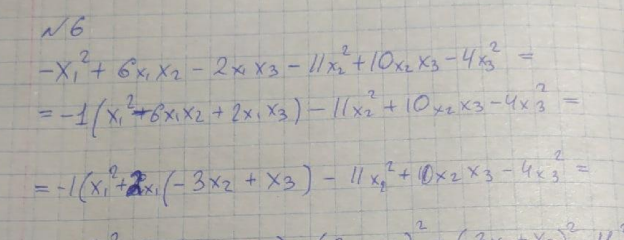 №6
-x₁² + 6x₁x₂ - 2x₁x₃ - 11x₂² + 10x₂x₃ - 4x₃² =
= -1(x₁² - 6x₁x₂ + 2x₁x₃) - 11x₂² + 10x₂x₃ - 4x₃² =
= -1(x₁² + 2x₁(-3x₂ + x₃) - 11x₂² + 10x₂x₃ - 4x₃² =